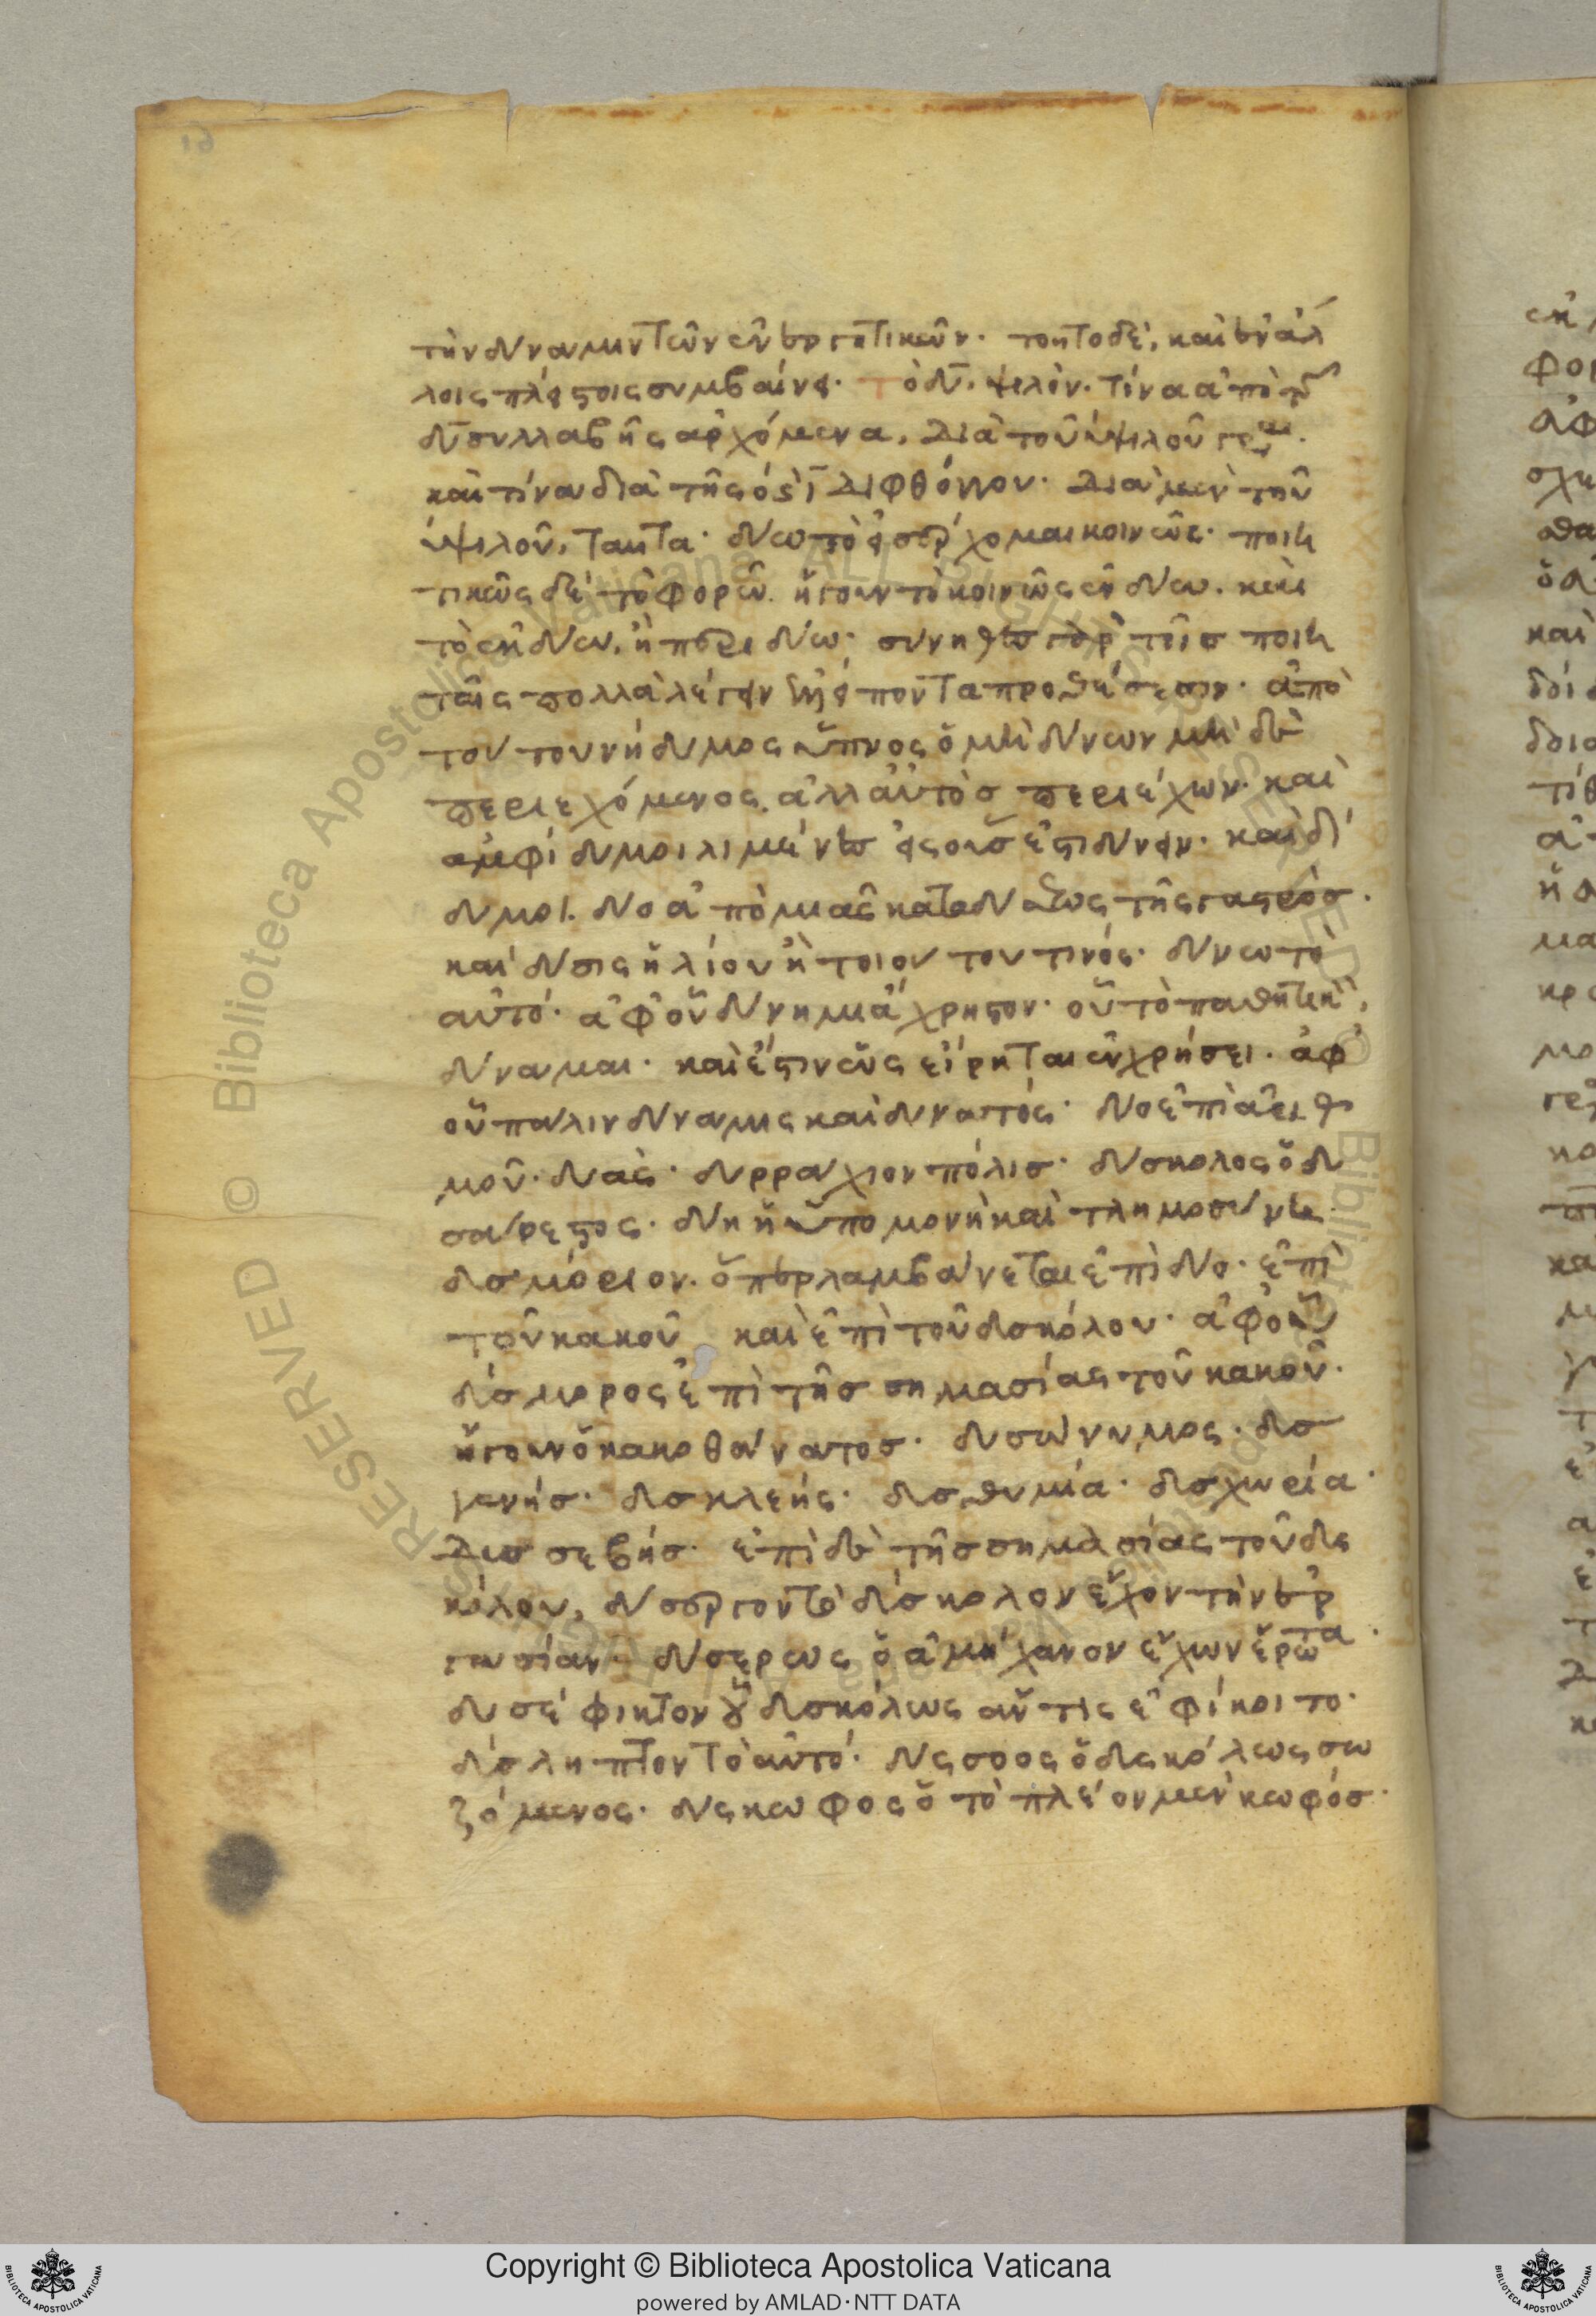 τὴν δύναμιν τῶν ἐνεργητικῶν· τοῦτο δὲ, καὶ ἐν ἄλ
λοις πλείστοις συμβαίνει· τὸ δυ ψιλὸν· τίνα ἀπὸ τῆς
δυ συλλαβῆς ἀρχόμενα, διὰ τοῦ υ ψιλοῦ
καὶ τίνα διὰ τῆς ο καὶ ι διφθόγγου· διὰ μὲν τοῦ
υ ψιλοῦ, ταῦτα· δύω τὸ εἰσέρχομαι κοινῶς· ποιη
τικῶς δὲ τὸ φορῶ. ἤγουν τὸ κοινῶς ἐνδύω. καὶ
τὸ ἐκδύω, ἢ περιδύω· σύνηθες γὰρ τοῖς ποιη
ταῖς πολλὰ λέγειν προθέσεσιν· ἀπὸ
τούτου νήδυμος ὕπνος ὁ μὴ δύνων μηδὲ
περιεχόμενος. ἀλλ' αὐτὸς περιέχων· καὶ
ἀμφίδυμοι λιμένες εἰς οὓς ἔστι δύνειν· καὶ δί
δυμοι. δύο ἀπὸ μιᾶς καταδύσεως τῆς γαστρός·
καὶ δύσις ἡλίου ἢ τοιούτου τινός· δύνω τὸ
αὐτό· ἀφ' οὗ δύνημι ἄχρηστον· οὗ τὸ παθητικὸν,
δύναμαι· καὶ ἔστιν ὡς εἴρηται ἐν χρήσει. ἀφ'
οὗ πάλιν δύναμις καὶ δυνατός· δύο ἐπὶ ἀριθ
μοῦ· δυάς· δυρράχιον πόλις· δύσκολος ὁ δυ
σάρεστος· δύη ἡ ὑπομονὴ καὶ τλημοσύνη·
δυσ μόριον. ὅπερ λαμβάνεται ἐπὶ δύο· ἐπὶ
τοῦ κακοῦ καὶ ἐπὶ τοῦ δυσκόλου· ἀφ' οὗ
δύσμορος ἐπὶ τῆς σημασίας τοῦ κακοῦ·
ἤγουν ὁ κακοθάνατος· δυσώνυμος· δυσ
γενής· δυσκλεής· δυσθυμία· δυσχωρία·
δυσσεβής· ἐπὶ δὲ τῆς σημασίας τοῦ δυς
κόλου, δύσεργον τὸ δύσκολον ἔχον τὴν ἐρ
γασίαν· δύσερως ὁ ἀμήχανον ἔχων ἔρωτα·
δυσέφικτον οὗ δυσκόλως ἄν τις ἐφίκοιτο·
δύσληπτον τὸ αὐτό· δύςσοος ὁ δυςκόλως σω
ζόμενος· δύςκωφος ὁ τὸ πλέον μὲν κωφός·